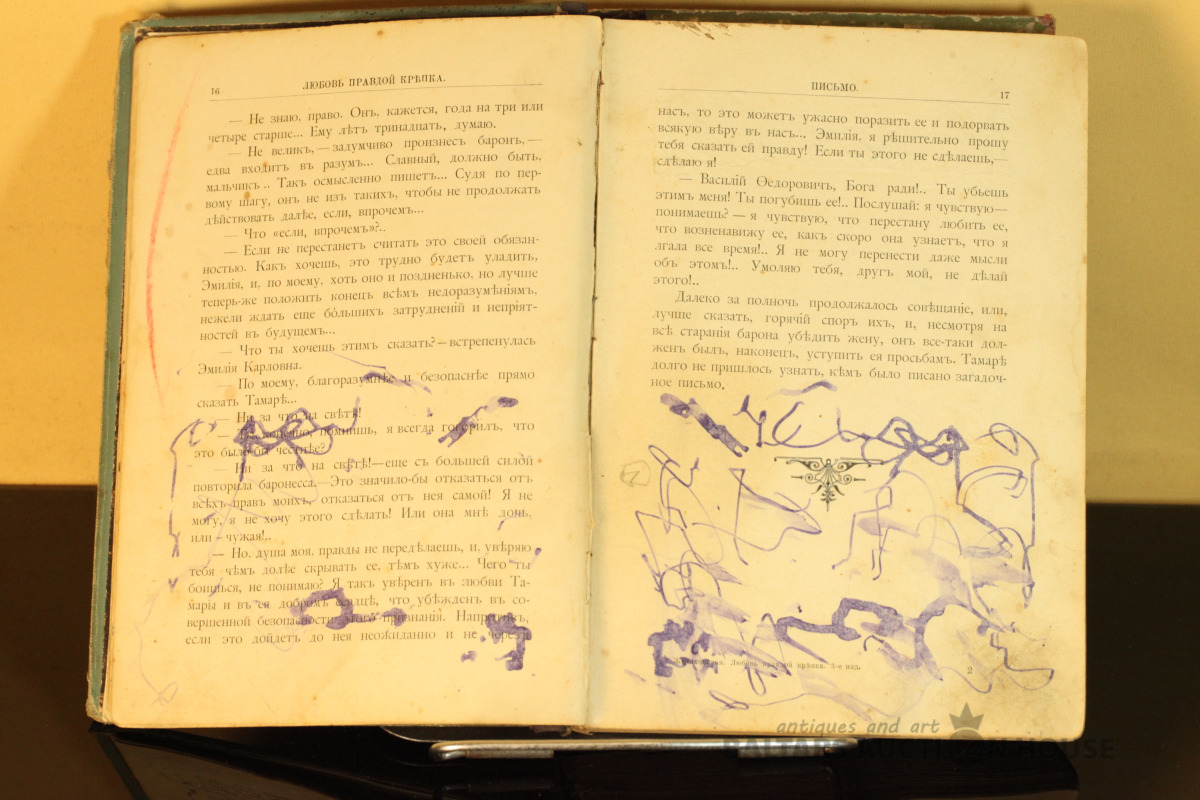 16
ЛЮБОВЬ ПРАВДОЙ КРѢПКА.
— Не знаю, право. Онъ, кажется, года на три или
четыре старше... Ему лѣтъ тринадцать, думаю.
— Не великъ, — задумчиво произнесъ баронъ, —
едва входитъ въ разумъ... Славный, должно быть,
мальчикъ.. Такъ осмысленно пишетъ... Судя по пер-
вому шагу, онъ не изъ такихъ, чтобы не продолжать
дѣйствовать далѣе, если, впрочемъ...
— Что «если, впрочемъ»?..
— Если не перестанетъ считать это своей обязан-
ностью. Какъ хочешь, это трудно будетъ уладить,
Эмилія, и, по моему, хоть оно и поздненько, но лучше
теперь-же положить конецъ всѣмъ недоразумѣніямъ,
нежели ждать еще бо́льшихъ затрудненій и непріят-
ностей въ будущемъ...
— Что ты хочешь этимъ сказать? — встрепенулась
Эмилія Карловна.
— По моему, благоразумнѣе и безопаснѣе прямо
сказать Тамарѣ...
— Ни за что на свѣтѣ!
конечно, помнишь, я всегда говорилъ, что
это было бы честнѣе?
— Ни за что на свѣтѣ! — еще съ большей силой
повторила баронесса.—Это значило-бы отказаться отъ
всѣхъ правъ моихъ, отказаться отъ нея самой! Я не
могу, я не хочу этого сдѣлать! Или она мнѣ дочь,
или – чужая!..
— Но, душа моя, правды не передѣлаешь, и, увѣряю
тебя чѣмъ долѣе скрывать ее, тѣмъ хуже... Чего ты
боишься, не понимаю? Я такъ увѣренъ въ любви Та-
мары и въ ея добромъ сердцѣ, что убѣжденъ въ со-
вершенной безопасности этого признанія. Напротивъ,
если это дойдетъ до нея неожиданно и не черезъ
ПИСЬМО.
17
насъ, то это можетъ ужасно поразить ее и подорвать
всякую вѣру въ насъ... Эмилія, я рѣшительно прошу
тебя сказать ей правду! Если ты этого не сдѣлаешь,—
сдѣлаю я!
— Василій Ѳедоровичъ, Бога ради!.. Ты убьешь
этимъ меня! Ты погубишь ее!.. Послушай: я чувствую—
понимаешь? — я чувствую, что перестану любить ее,
что возненавижу ее, какъ скоро она узнаетъ, что я
лгала все время!.. Я не могу перенести даже мысли
объ этомъ!.. Умоляю тебя, другъ мой, не дѣлай
этого!..
Далеко за полночь продолжалось совѣщаніе, или,
лучше сказать, горячій споръ ихъ, и, несмотря на
всѣ старанія барона убѣдить жену, онъ все-таки дол-
женъ былъ, наконецъ, уступить ея просьбамъ. Тамарѣ
долго не пришлось узнать, кѣмъ было писано загадоч-
ное письмо.
Любовь правдой крѣпка. 3-е изд.
2
antiques and art
BALTAIC AUCTION HOUSE